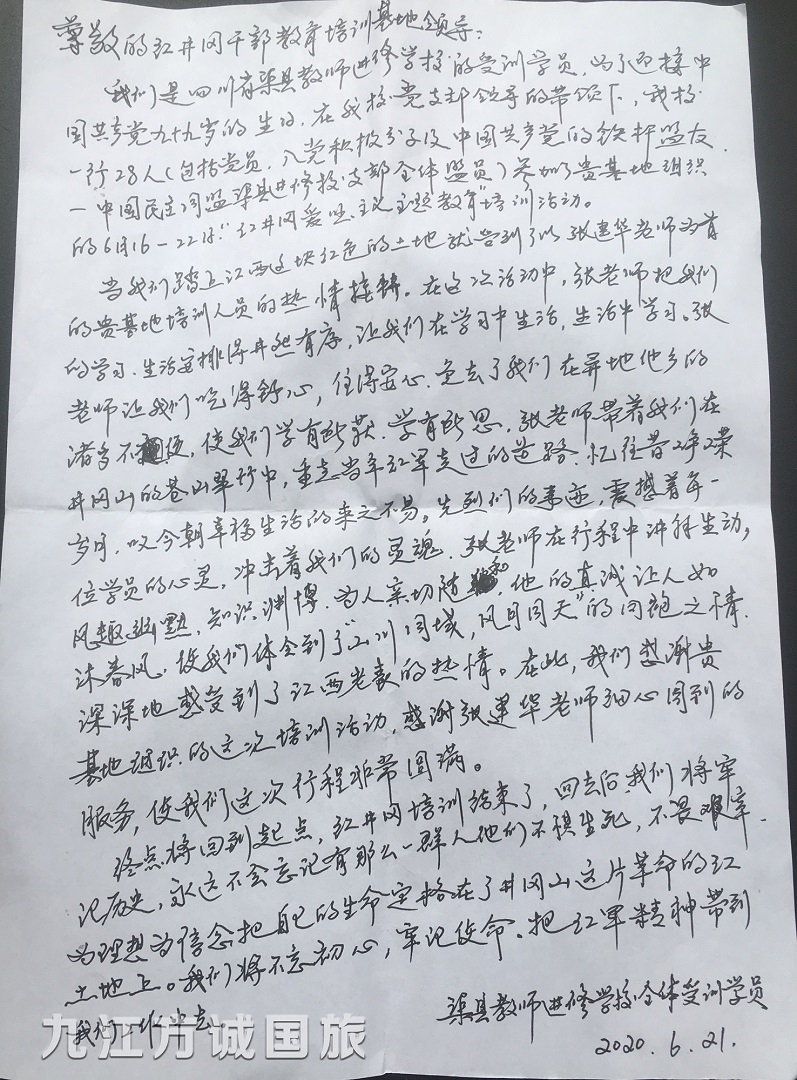 尊敬的红井冈干部教育培训基地领导：
我们是四川省渠县教师进修学校的受训学员，为了迎接中
国共产党九十九岁的生日，在我校党支部领导的带领下，我校
一行28人（包括党员，入党积极分子及中国共产党的铁杆盟友
—中国民主同盟渠县进修校支部全体盟员）参加了贵基地组织
的6月16—22日“红井冈爱国主义主题教育”培训活动。
当我们踏上江西这块红色的土地就感到了以张建华老师为首
的贵基地培训人员的热情接待。在这次活动中，张老师把我们
的学习、生活安排得井然有序，让我们在学习中生活，生活中学习。张
老师让我们吃得舒心，住得安心，免去了我们在异地他乡的
诸多不便，使我们学有所获，学有所思，张老师带着我们在
井冈山的苍山翠竹中，重走当年红军走过的道路，忆往昔峥嵘
岁月，叹今朝幸福生活的来之不易。先烈们的事迹，震撼着每一
位学员的心灵，冲击着我们的灵魂，张老师在行程中讲解生动，
风趣幽默，知识渊博，为人亲切随和，他的真诚让人如
沐春风，使我们体会到了“山川同域，风月同天”的同胞之情，
深深地感受到了江西老表的热情。在此，我们感谢贵
基地组织的这次培训活动，感谢张建华老师细心周到的
服务，使我们这次行程非常圆满。
终点将回到起点，红井冈培训结束了，回去后我们将牢
记历史，永远不会忘记有那么一群人他们不惧生死，不畏艰辛，
为理想为信念把自己的生命定格在了井冈山这片革命的红
土地上。我们将不忘初心，牢记使命，把红军精神带到
我们工作中去。
渠县教师进修学校全体受训学员
2020.6.21.
九江方诚国旅